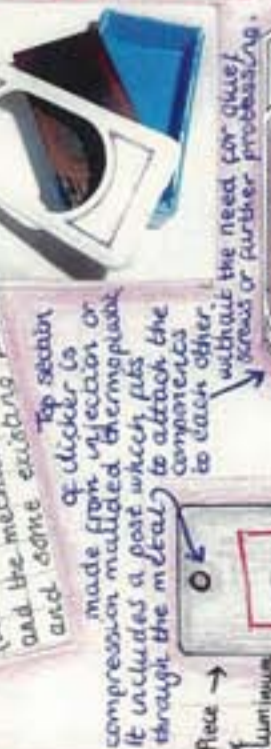 and the metho
and some existing
Top section
of clicker is
made from injection or
compression moulded thermoplastic
It includes a post which fits
through the metal to attach the
components
to each other,
without the need for glue/
screws or further processing.
Piece →
f
luminium